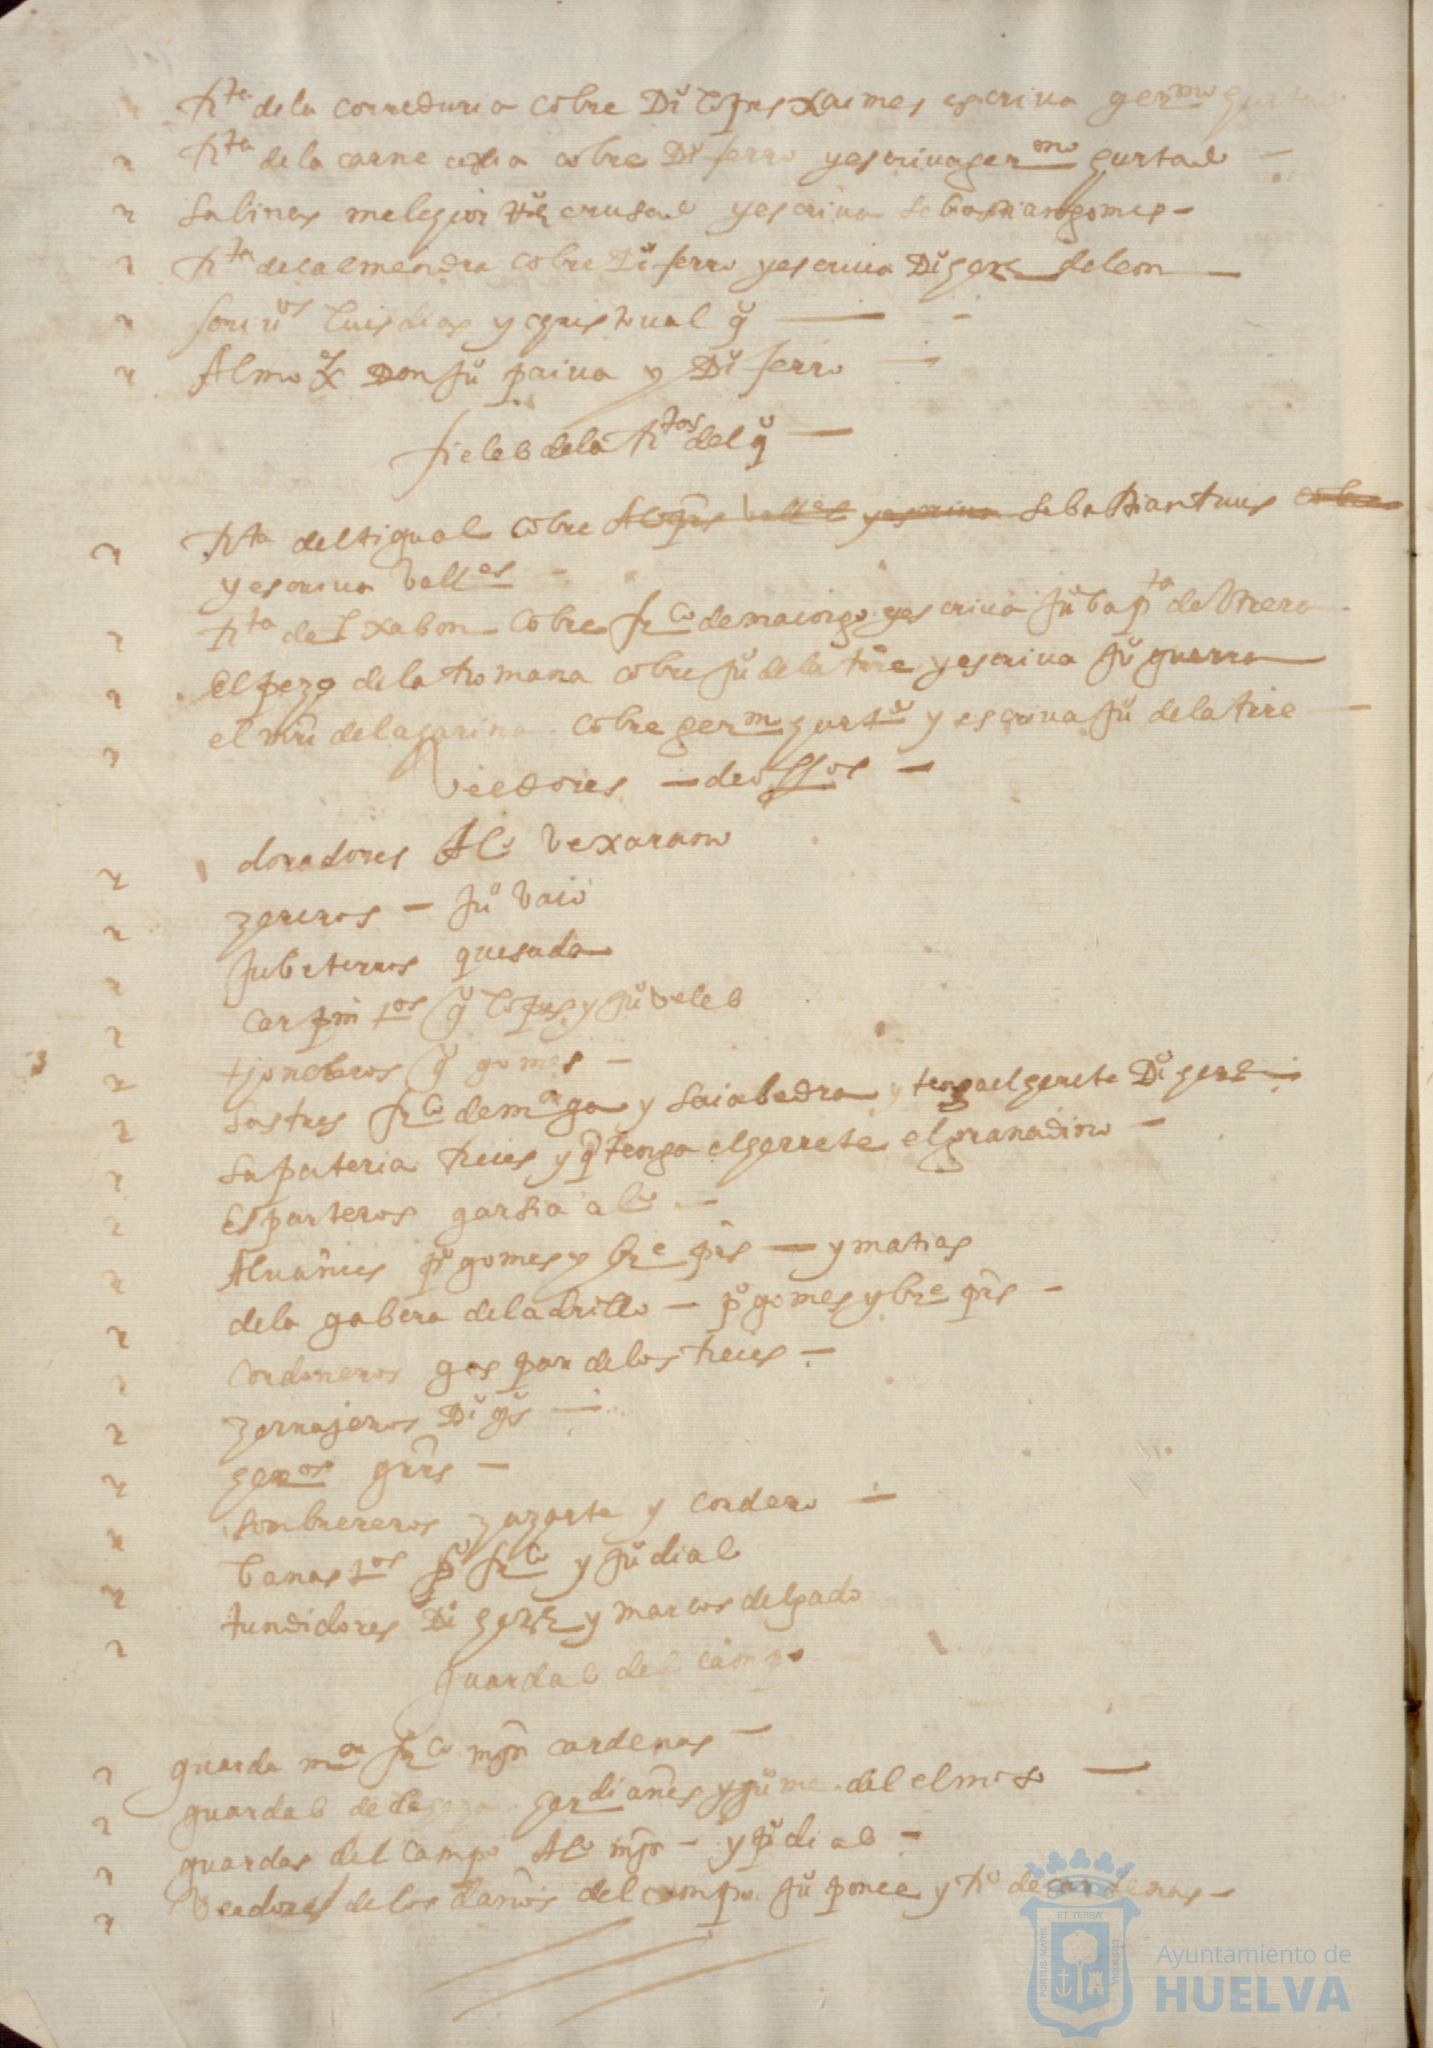 Rta de la correduria cobre Dio lopes xaimes escriua germo hurtado
Rta de la carne cobre Dio ferro y escriua germo hurtado
salinas melchior crusado y escriua sebastian gomes
Rta de la almendra cobre Dio ferro y escriua Dio de leon
luis dias y christoual go
Almoxes Don juo paiua y Dio ferro
fieles de la Rtas del go
Rta deltigual cobre Alo prs valles y escriua sebastian Ruis cobre
y escriua valles
Rta del xabon cobre frco de maiorga y escriua juo bapta de Vrera
El pezo de la Romana cobre juo de la tire y escriua juo guerra
el de la harina cobre germo hurtdo y escriua juo de la tire
Veedores de offos
doradores Alo bexarano
zereros juo baio
jubeteros quesada
carpintos go lopes y juo veles
toneleros go gomes
sastres frco de maga y saiabedra y tenga el herrete Dio
sapateria Reies y q tenga el herrete el granadino
Esparteros garsia alo
Aluanies po gomes y bre prs y matias
de la gabera de ladrillo po gomes y bre prs
Cordoneros gaspar de los Reies
zerrajeros Dio gs
herros grrs
sombrereros zazarte y cordero
banastos po frco y juo dias
tundidores Dio y marcos delgado
guardas del campo
guarda mor frco mjn cardenas
guardas de y juo del elmoso
guardas del campo Alo mjn y po dias
Veadores de los daños del campo juo ponce y Ro de cardenas
PORTUS MARIS
ET TERRÆ
CUSTODIA
Ayuntamiento de
HUELVA